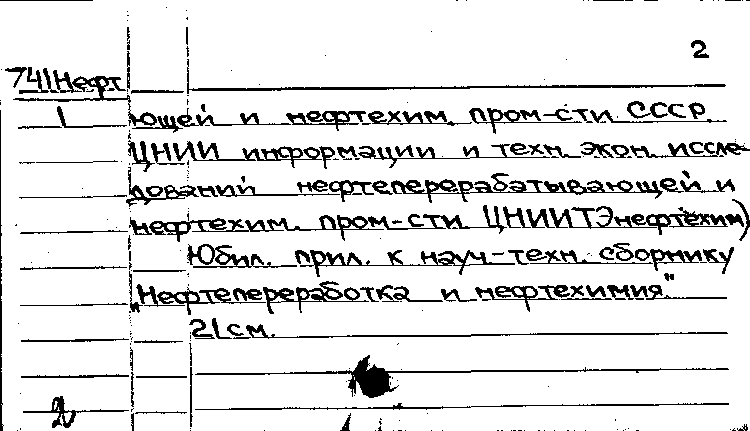 2
741Нефт
1 ющей и нефтехим. пром-сти СССР.
ЦНИИ информации и техн. экон. иссле-
дований нефтеперерабатывающей и
нефтехим. пром-сти ЦНИИТЭнефтехим)
Юбил. прил. к науч.-техн. сборнику
„Нефтепереработка и нефтехимия."
21см.
2